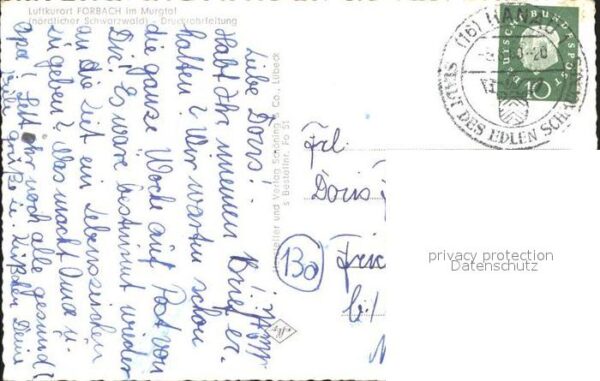 Luftkurort FORBACH im Murgtal
(nördlicher Schwarzwald) - Druckrohrleitung
Liebe Doris!
Habt Ihr meinen Brief er-
halten? Wir warten schon
die ganze Woche auf Post von
Dir! Es wäre bestimmt wieder
an die Zeit ein Lebenszeichen
zu geben! Was macht Oma u.
Opa! Seid ihr noch alle gesund!
Viele Grüße u. Küßchen Deine
Hersteller und Verlag Schöning & Co., Lübeck
s Bestellnr. Fo 51
(16) HANAU
STADT DES EDLEN SCHMUCKES
DEUTSCHE BUNDESPOST
10
Frl.
Doris
(13a)
b/
privacy protection
Datenschutz